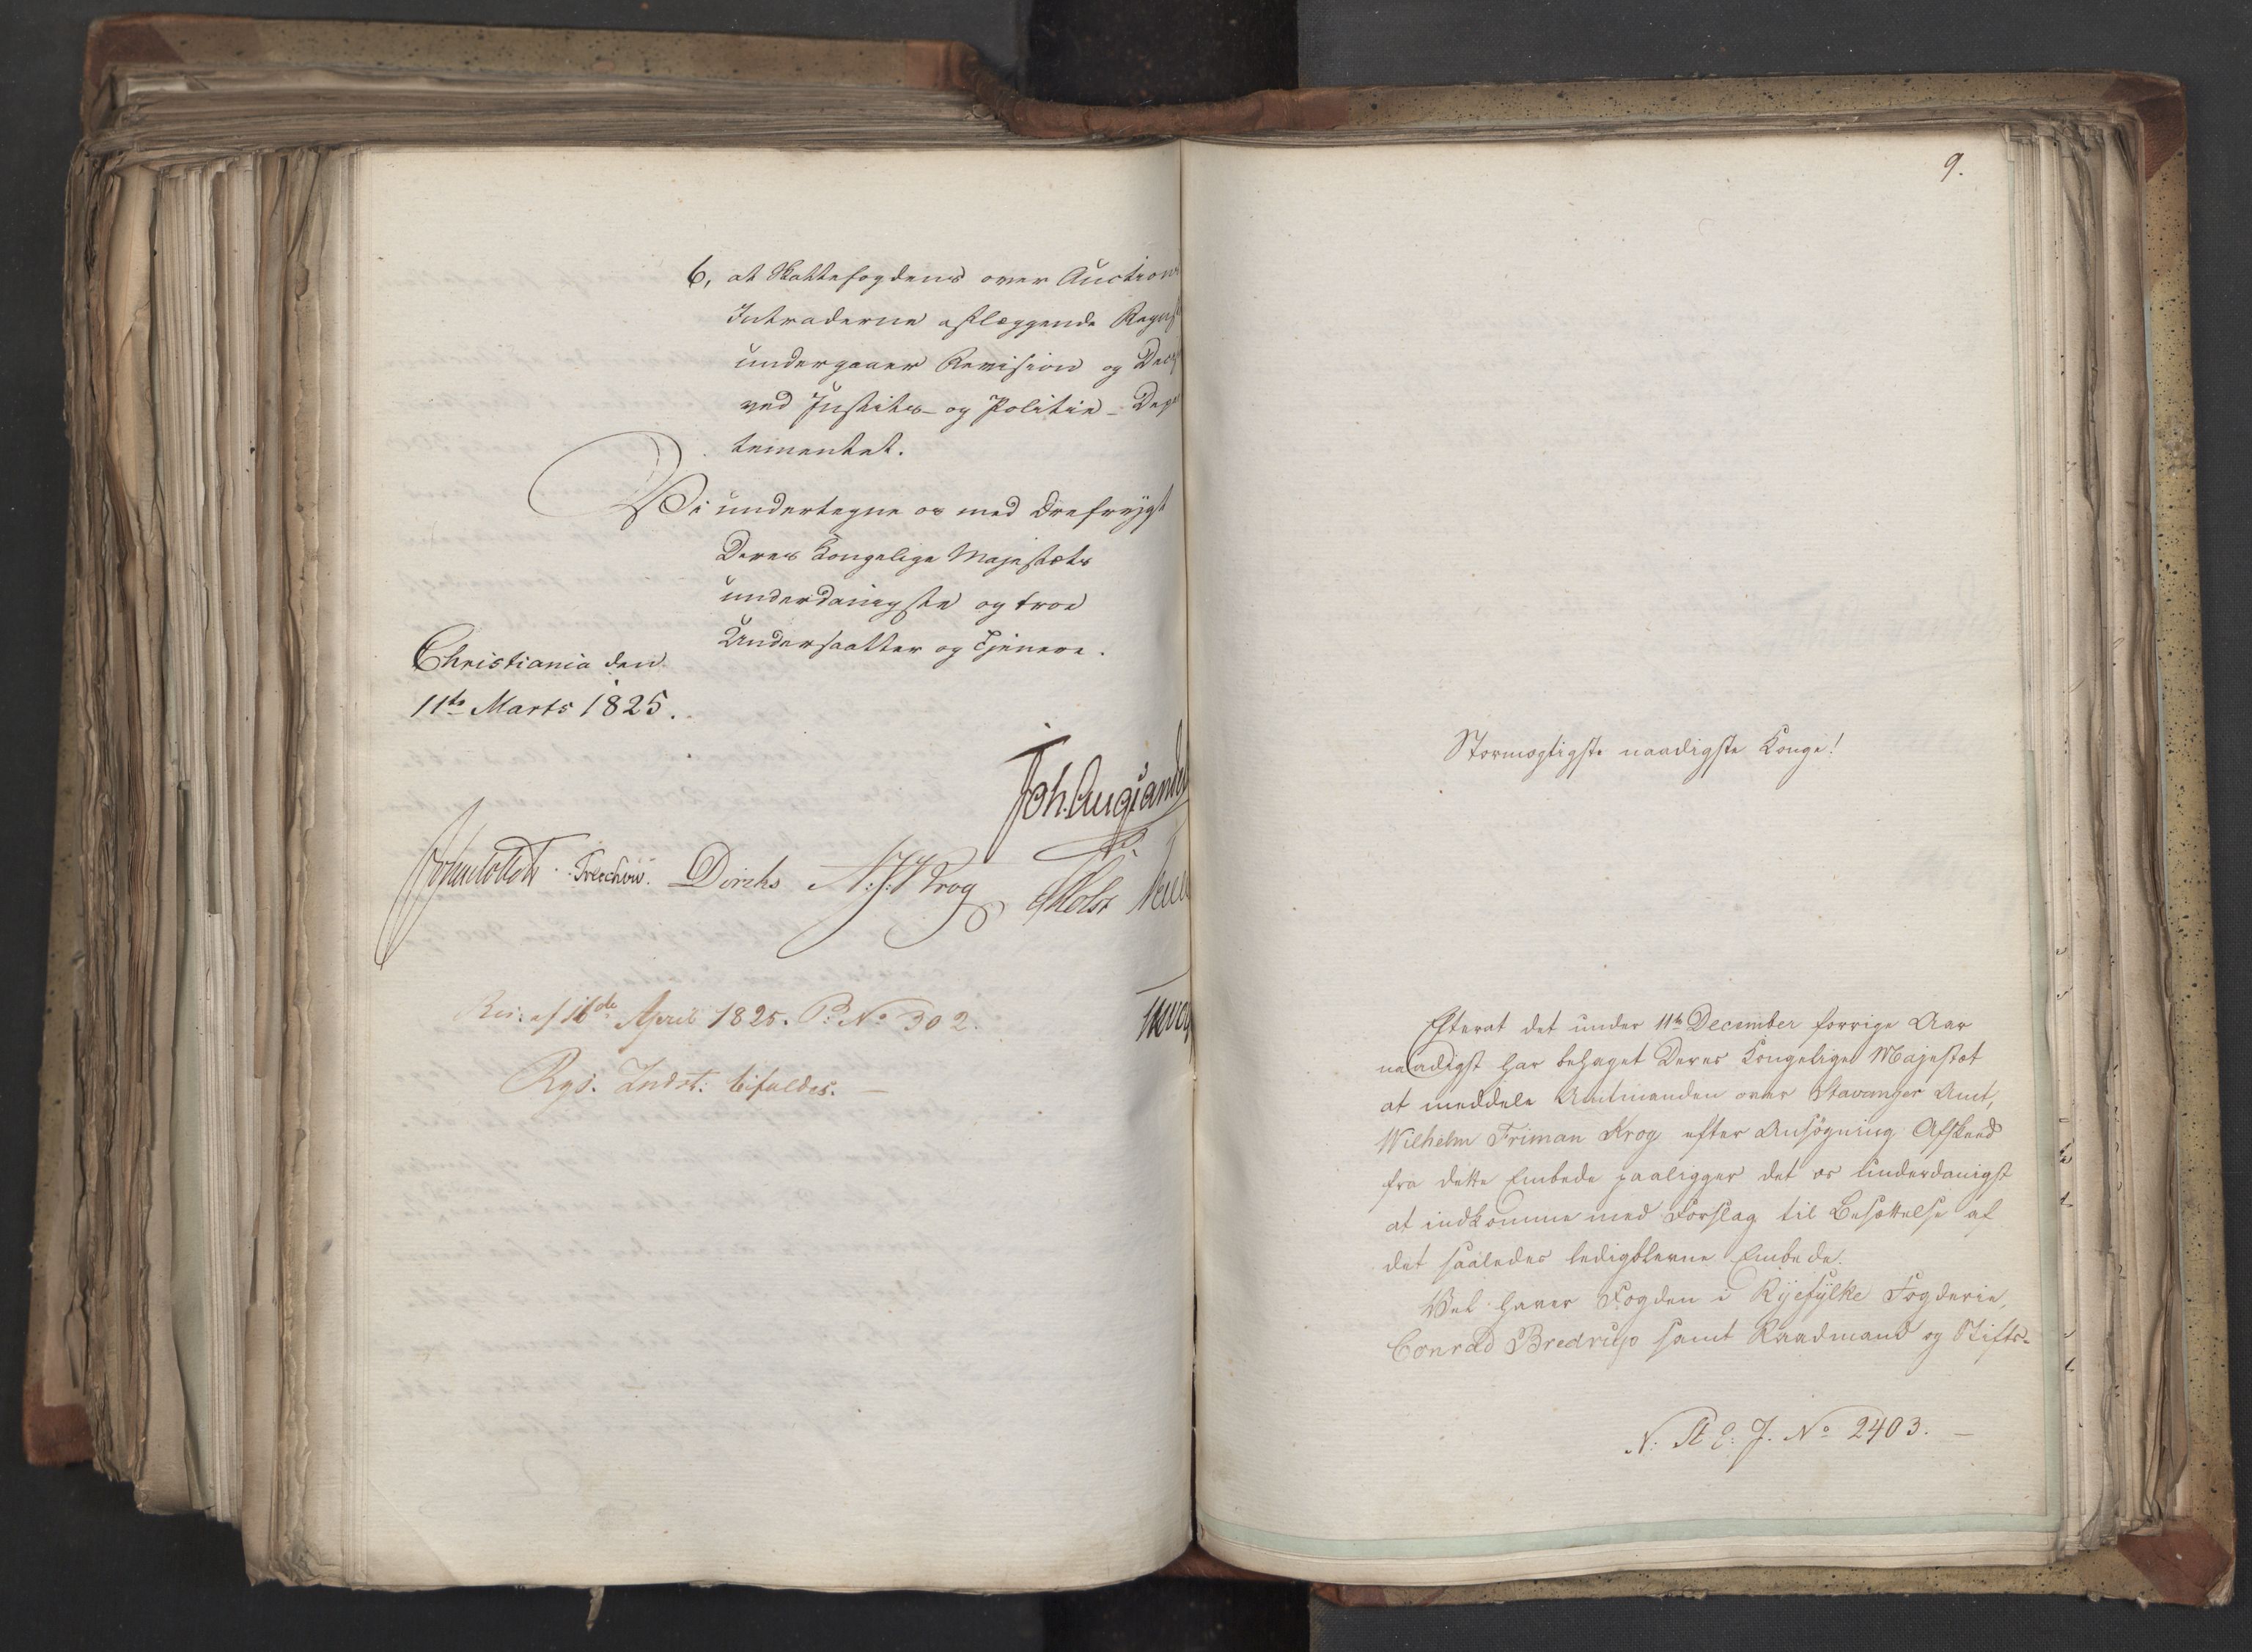 6, at Skattefogdens over Auctions
Intraderne aflæggende Regnsk
undergaaer Revision og Deci
ved Justits- og Politie-Depar
tementet.
Vi undertegne os med Ærefrygt
Deres Kongelige Majestæts
underdanigste og troe
Undersaatter og Tjenere.
Christiania den
11te Marts 1825.
Joh. Aug. Sandels
Sommerhielm Treschow. Diriks N. J. Krog P Holst
Res: af 16de April 1825. P: No 302.
Rgs. Indst: bifaldes. —
9.
Stormægtigste naadigste Konge!
Efterat det under 11te December forrige Aar
naadigst har behaget Deres Kongelige Majestæt
at meddele Amtmanden over Stavanger Amt,
Wilhelm Friman Krog efter Ansøgning Afskeed
fra dette Embede paaligger det os underdanigst
at indkomme med Forslag til Besættelse af
det saaledes ledigblevne Embede.
Vel haver Fogden i Ryefylke Fogderie,
Conrad Bredrup samt Raadmand og Stifts-
N: St E: J. No 2403. —